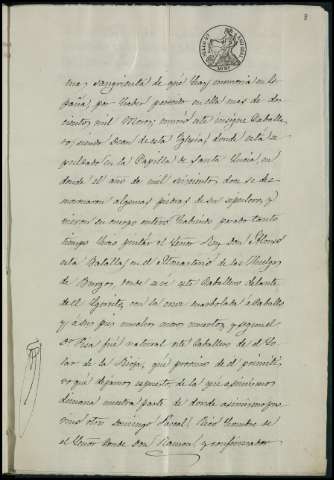 8
mas sangrienta de que hay memoria en Es
paña, por haber perecido en ella mas de do
cientos mil Moros, murió este insigne Caballe
ro, siendo Dean de esta Iglesia, donde está se
pultado en la Capilla de Santa Lucia, en
donde el año de mil seiscientos, don se des
moronaron algunas piedras de su sepulcro, y
vieron su cuerpo entero habiendo pasado tanto
tiempo. Hizo pintar el Señor Rey Don Alonso
esta Batalla, en el Monasterio de las Huelgas
de Burgos, donde se ve este Caballero delante
de el Ejercito, con la cruz enarbolada á Caballo
y á sus pies muchos moros muertos, y aquel
fué natural este Caballero de el So
lar de la Rioja, que provino de el primiti
vo que dejamos expuesto, de la que asimismo
dimana nuestra parte de donde asimismo pro
vino otro Domingo Pascual, Rico hombre de
el Señor Conde Don Ramon, y confirmador